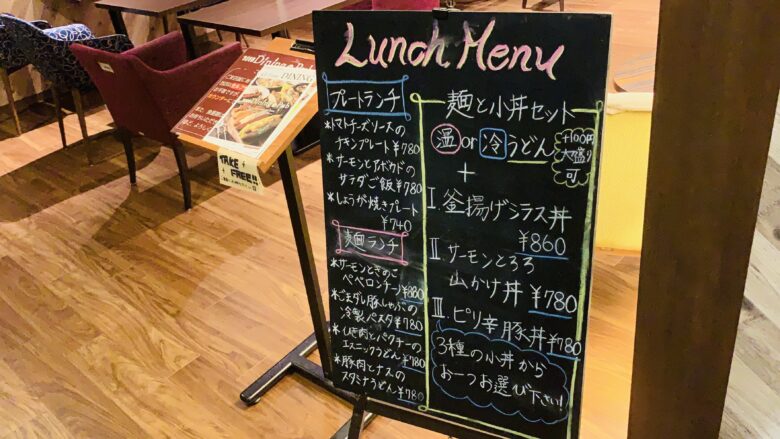 Lunch Menu
プレートランチ
*トマトチーズソースの
チキンプレート ¥780
*サーモンとアボカドの
サラダご飯 ¥780
*しょうが焼きプレート
¥740
麺ランチ
*サーモンときのこ
ペペロンチーノ ¥880
*ごまダレ豚しゃぶの
冷製パスタ ¥780
*ひき肉とパクチーの
エスニックうどん ¥780
*豚肉とナスの
スタミナうどん ¥780
麺と小丼セット
温 or 冷 うどん
+100円
大盛り
可
+
I 釜揚げシラス丼
¥860
II サーモンとろろ
山かけ丼 ¥780
III. ピリ辛豚丼 ¥780
3種の小丼から
お一つお選び下さい!
DINING
TAKE
FREE!!